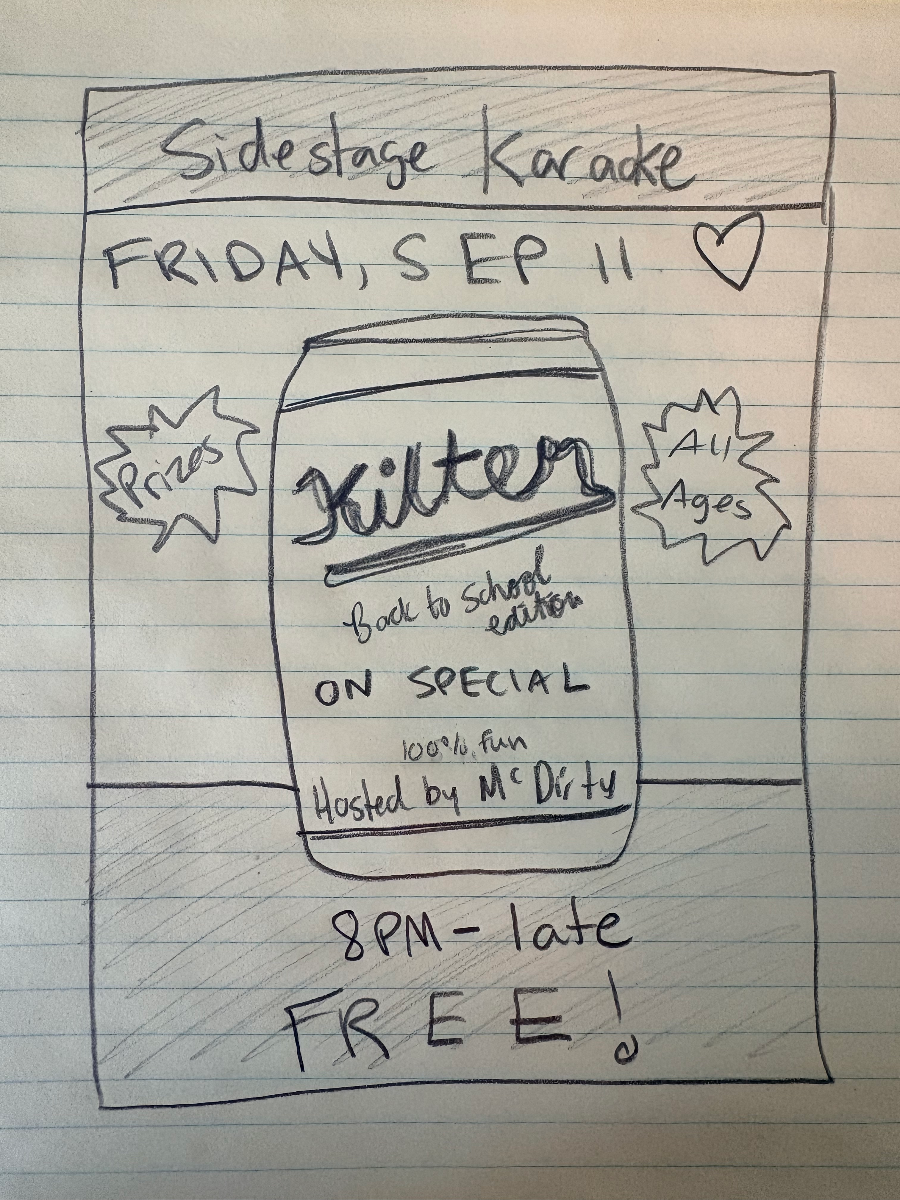 Sidestage Karaoke
FRIDAY, SEP 11
Prizes
All
Ages
Kilter
Back to School
edition
ON SPECIAL
100% fun
Hosted by McDirty
8PM - late
FREE!